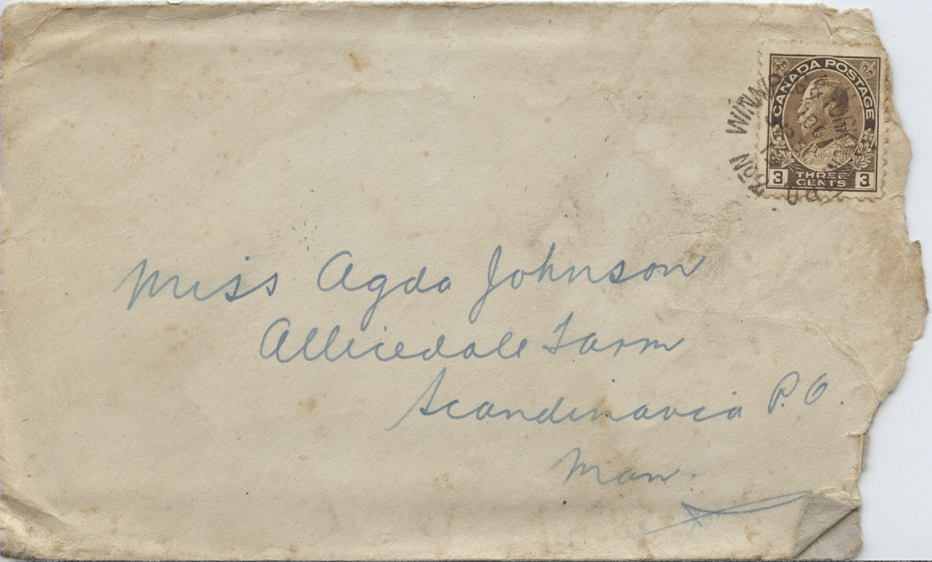 CANADA POSTAGE
3 THREE CENTS 3
Miss Agda Johnson
Allicedale Farm
Scandinavia P.O.
Man.